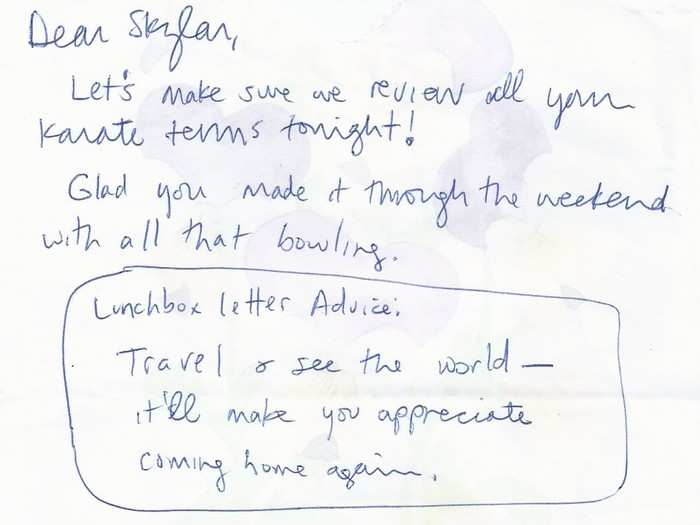 Dear Skylar,
Let's make sure we review all your
Karate terms tonight!
Glad you made it through the weekend
with all that bowling.
Lunchbox letter Advice:
Travel & see the world —
it'll make you appreciate
coming home again.